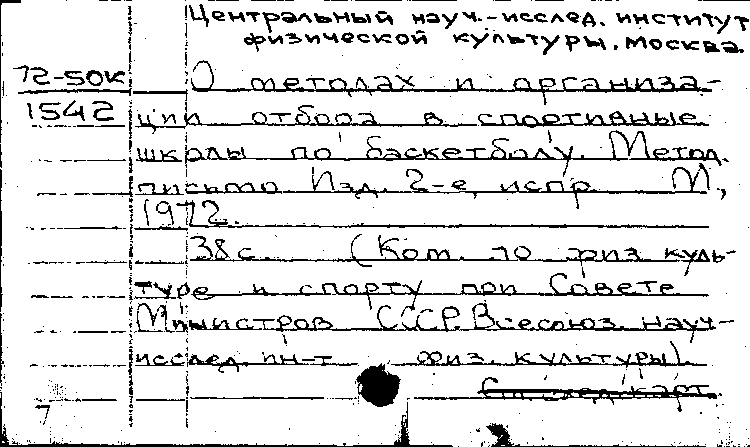 Центральный науч.-исслед. институт
физической культуры. Москва.
72-50к
1542
О методах и организа-
ции отбора в спортивные
школы по баскетболу. Метод.
письмо. Изд. 2-е, испр. М.,
1972.
38 с. (Ком. по физ. куль-
туре и спорту при Совете
Министров СССР. Всесоюз. науч-
исслед. ин-т физ. культуры).
См. след. карт.
7